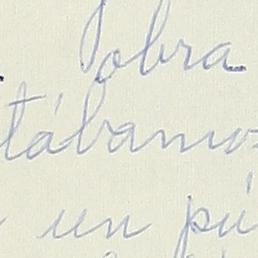 obra
tábamos
un pú